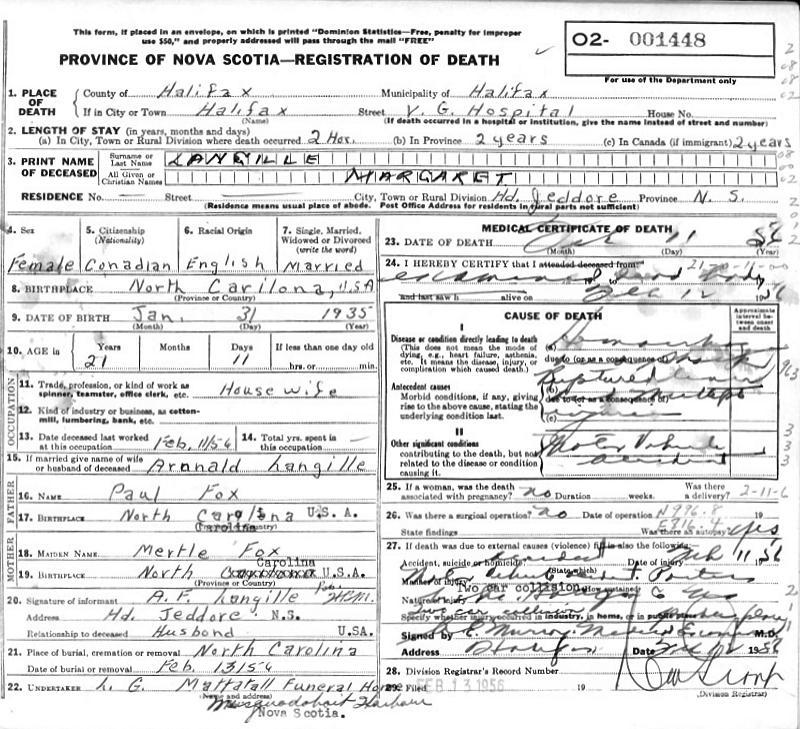 This form, if placed in an envelope, on which is printed "Dominion Statistics—Free, penalty for improper
use $50," and properly addressed will pass through the mail "FREE"
PROVINCE OF NOVA SCOTIA—REGISTRATION OF DEATH
O2- 001448
For use of the Department only
1. PLACE OF DEATH County of Halifax Municipality of Halifax
If in City or Town Halifax Street V. G. Hospital House No.
(Name) (If death occurred in a hospital or institution, give the name instead of street and number)
2. LENGTH OF STAY (in years, months and days)
(a) In City, Town or Rural Division where death occurred 2 Hrs. (b) In Province 2 years (c) In Canada (if immigrant) 2 years
3. PRINT NAME OF DECEASED Surname or Last Name LANGILLE
All Given or Christian Names MARGARET
RESIDENCE No. — Street — City, Town or Rural Division Hd. Jeddore Province N. S.
(Residence means usual place of abode. Post Office Address for residents in rural parts not sufficient)
4. Sex 5. Citizenship (Nationality) 6. Racial Origin 7. Single, Married, Widowed or Divorced (write the word)
Female Canadian English Married
8. BIRTHPLACE North Carilona, USA
(Province or Country)
9. DATE OF BIRTH Jan. 31 1935
(Month) (Day) (Year)
10. AGE in Years Months Days If less than one day old
21 11 hrs. or min.
OCCUPATION
11. Trade, profession, or kind of work as spinner, teamster, office clerk, etc. House wife
12. Kind of industry or business, as cotton-mill, lumbering, bank, etc.
13. Date deceased last worked at this occupation Feb. 11/56 14. Total yrs. spent in this occupation —
15. If married give name of wife or husband of deceased Arnnald Langille
FATHER
16. NAME Paul Fox
17. BIRTHPLACE North Carolena U.S.A.
Carolina
(Province or Country)
MOTHER
18. MAIDEN NAME Mertle Fox
Carolina
19. BIRTHPLACE North U.S.A.
(Province or Country)
20. Signature of informant A. F. Langille
Address Hd. Jeddore N.S.
Relationship to deceased Husband USA.
21. Place of burial, cremation or removal North Carolina
Date of burial or removal Feb. 13/56
22. UNDERTAKER L. G. Mattatall Funeral Home
(Name and address)
Musquodoboit Harbour
Nova Scotia.
MEDICAL CERTIFICATE OF DEATH
23. DATE OF DEATH Feb 11 56
(Month) (Day) (Year)
24. I HEREBY CERTIFY that I attended deceased from:
examined dead body
and last saw h alive on Feb 12 1956
CAUSE OF DEATH
Approximate interval between onset and death
I
Disease or condition directly leading to death
(This does not mean the mode of dying, e.g., heart failure, asthenia, etc. It means the disease, injury, or complication which caused death.)
(a)
due to (or as a consequence of)
Antecedent causes
Morbid conditions, if any, giving rise to the above cause, stating the underlying condition last.
(b) Ruptured
due to (or as a consequence of) multiple
(c) injuries
II
Other significant conditions
contributing to the death, but not related to the disease or condition causing it.
Motor Vehicle
accident
25. If a woman, was the death associated with pregnancy? no Duration weeks. Was there a delivery? 2-11-6
26. Was there a surgical operation? no Date of operation N996.8 19
State findings E816.4 Was there an autopsy? yes
27. If death was due to external causes (violence) fill in also the following:
Accident, suicide or homicide? Accident Date of injury Feb 11 56
(State which)
Manner of injury
(How sustained)
Two car collision
Nature of injury
two car collision
Specify whether injury occurred in industry, in home, or in public place
Signed by M.D.
Address Halifax Date Feb 12 1956
28. Division Registrar's Record Number
29. Filed FEB 13 1956 19
(Division Registrar)